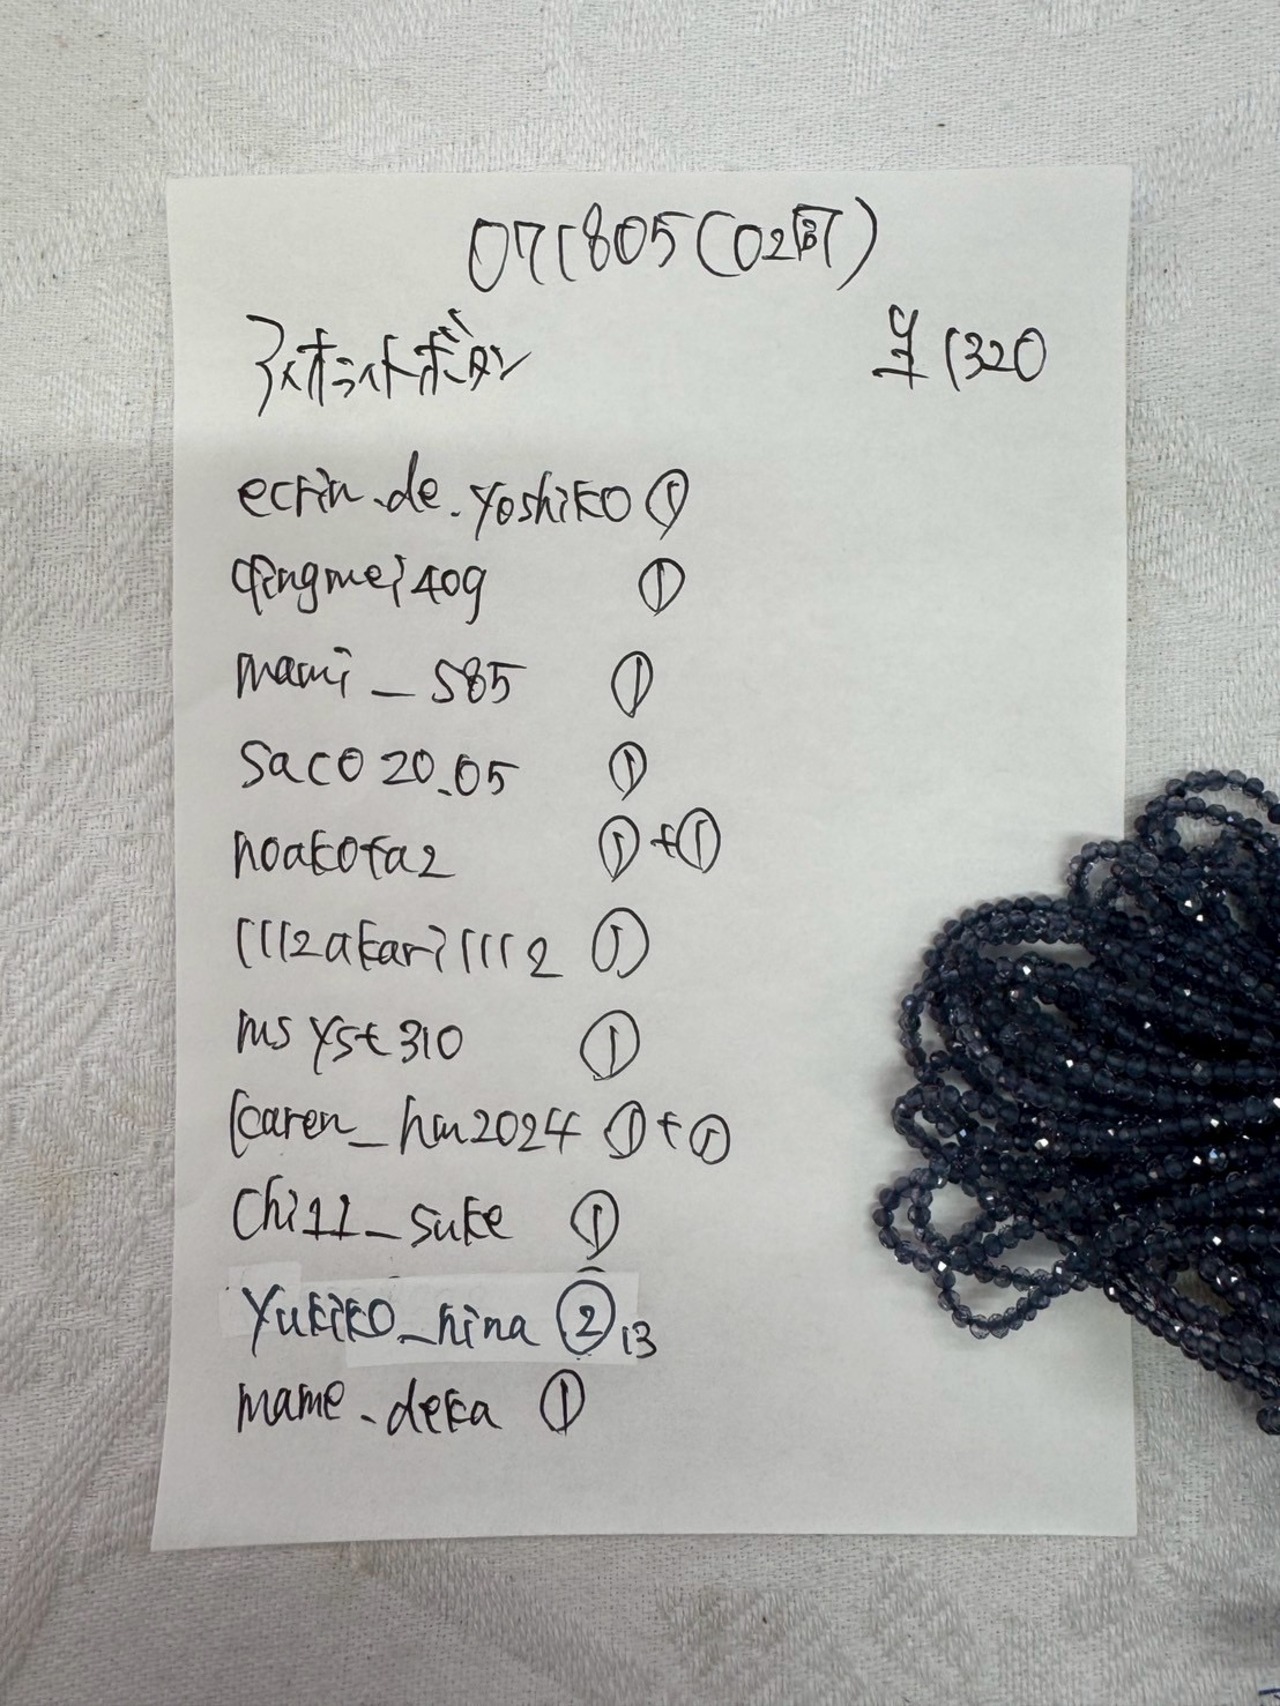 071805(02関)
アイオライトボタン ¥1320
ecrin.de.yoshiko ①
qingmei409 ①
mami_s85 ①
saco20.05 ①
noakota2 ①+①
1112akari1112 ①
msyst310 ①
karen_hm2024 ①+①
chi11_suke ①
yukiko_nina ② 13
mame.deka ①